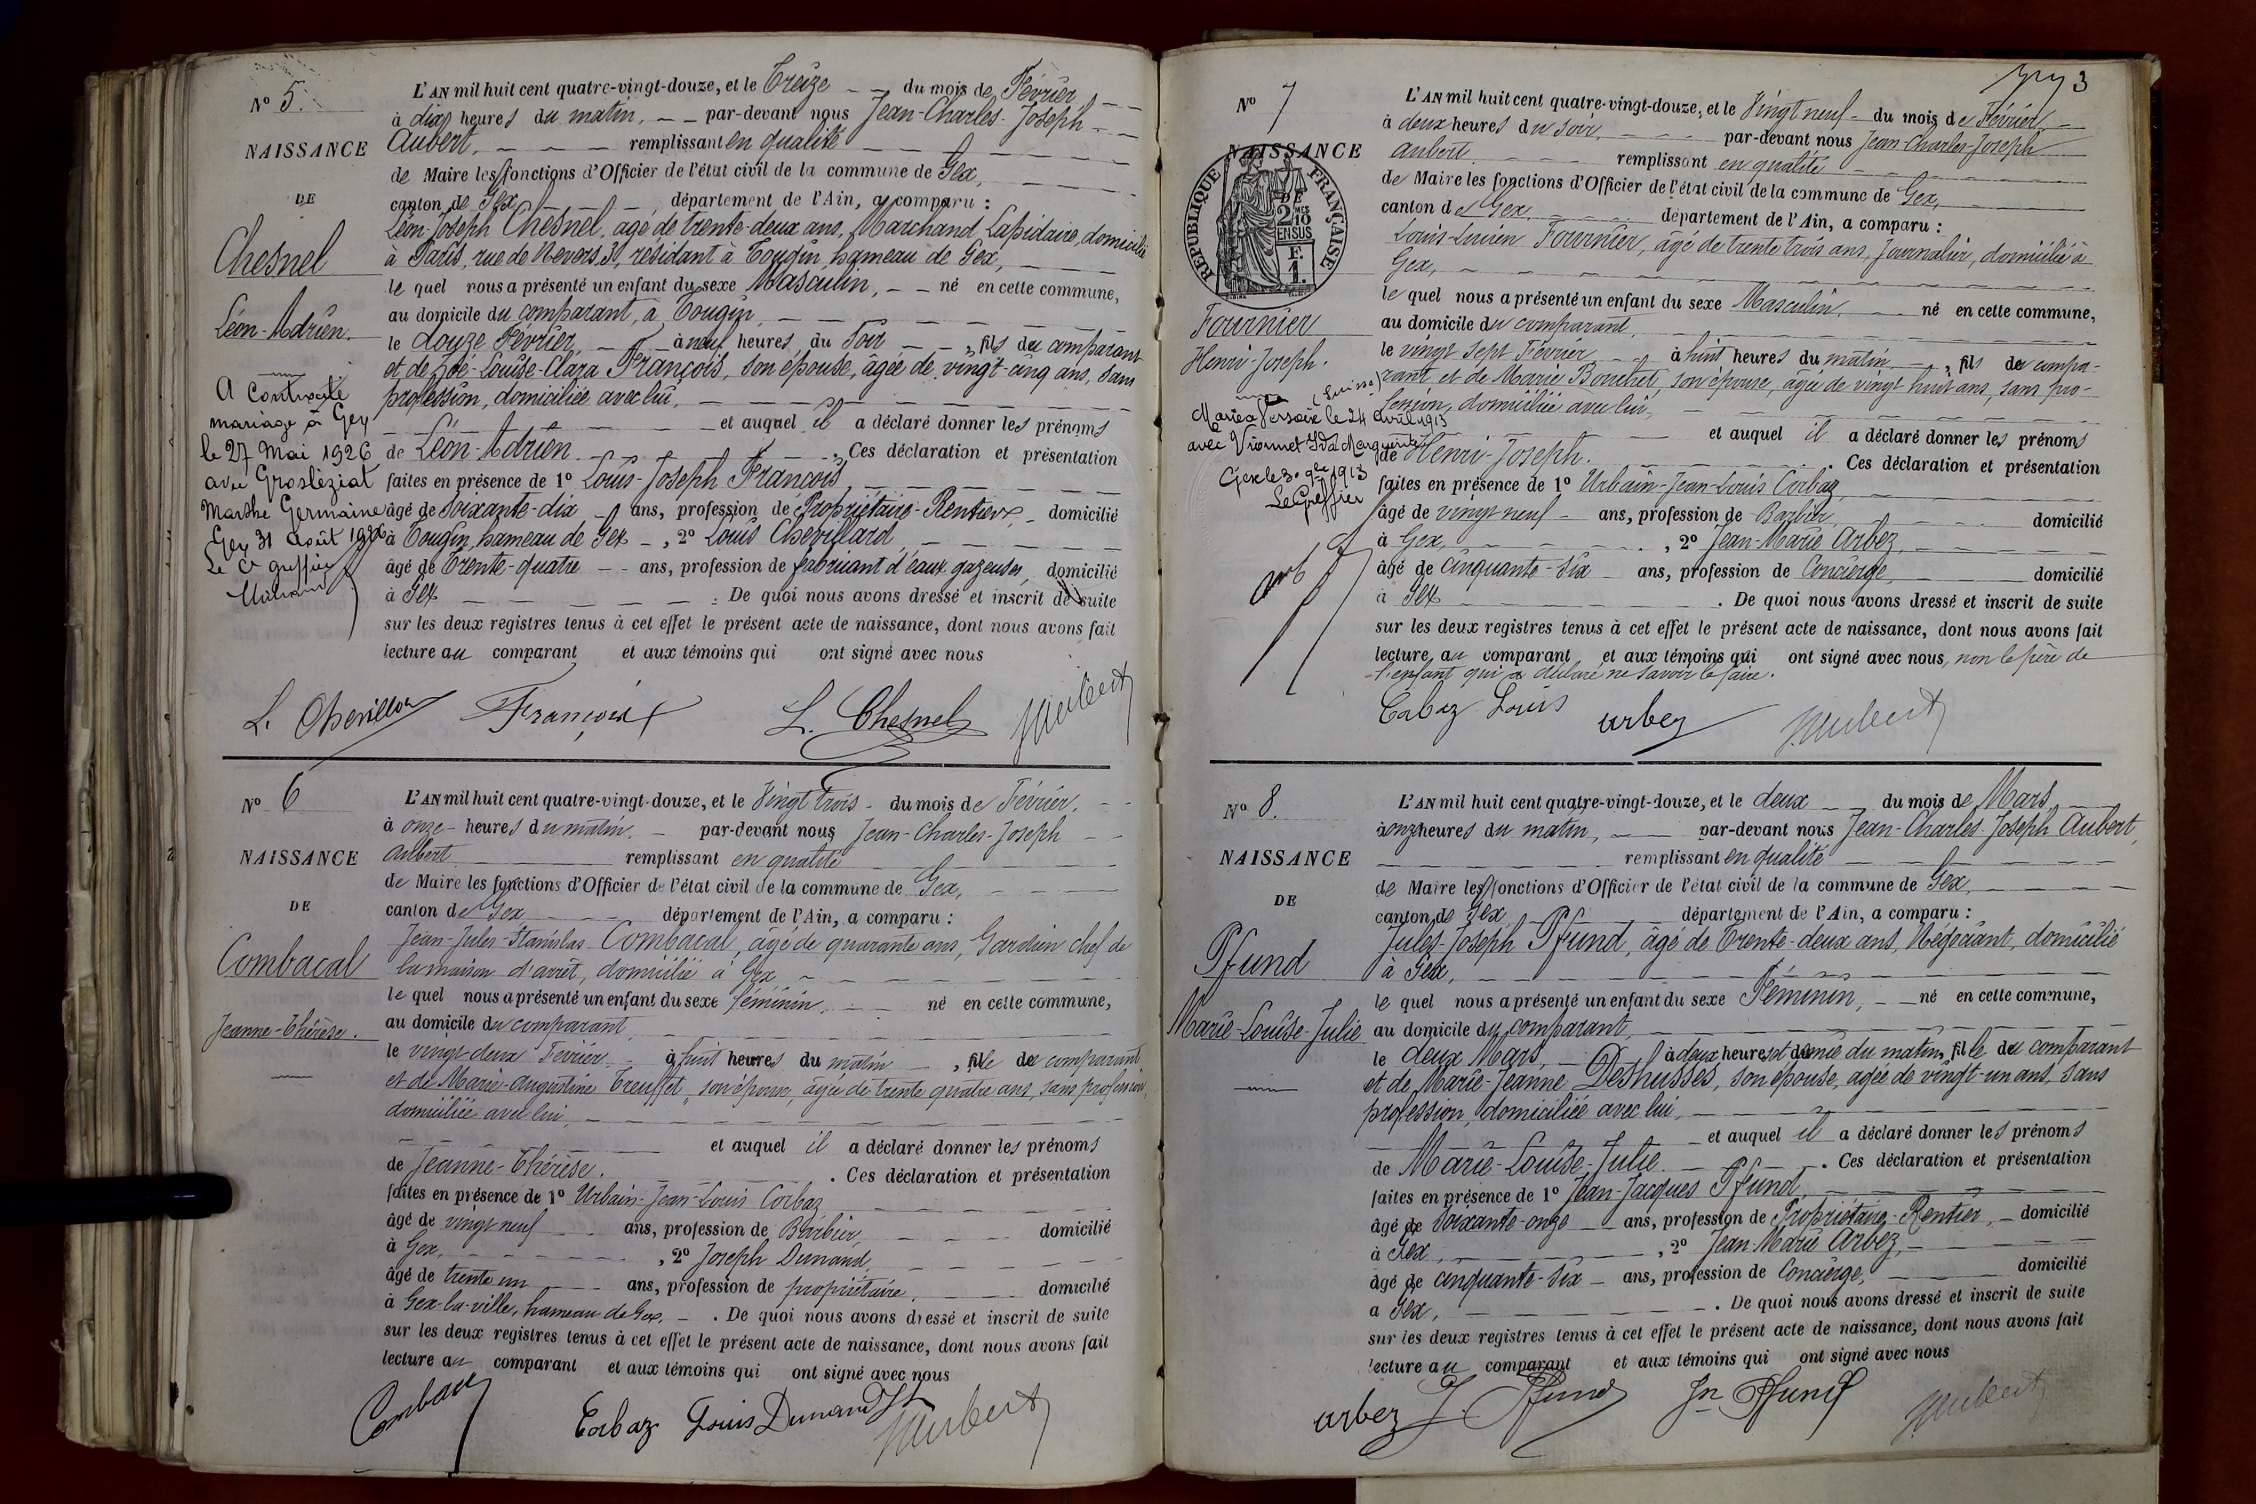 N° 5.
NAISSANCE
DE
Chesnel
Léon-Adrien.
A contracté
mariage à Gex
le 27 Mai 1926
avec Grosléziat
Marthe Germaine
Gex 31 août 1926
Le Cs greffier
L'AN mil huit cent quatre-vingt-douze, et le Treize du mois de Février
à dix heures du matin, par-devant nous Jean-Charles-Joseph
Aubert, remplissant en qualité
de Maire les fonctions d'Officier de l'état civil de la commune de Gex,
canton de Gex département de l'Ain, a comparu :
Léon-Joseph Chesnel, âgé de trente-deux ans, Marchand Lapidaire, domicilié
à Paris, rue de Nevers 3, résidant à Tougin, hameau de Gex,
le quel nous a présenté un enfant du sexe Masculin, né en cette commune,
au domicile du comparant, à Tougin,
le douze Février à neuf heures du Soir, fils du comparant
et de Zoé-Louise-Clara François, son épouse, âgée de vingt-cinq ans, sans
profession, domiciliée avec lui,
et auquel il a déclaré donner les prénoms
de Léon-Adrien. Ces déclaration et présentation
faites en présence de 1° Louis-Joseph François,
âgé de Soixante-dix ans, profession de Propriétaire-Rentier, domicilié
à Tougin, hameau de Gex, 2° Louis Chevillard,
âgé de Trente-quatre ans, profession de fabricant d'eaux gazeuses, domicilié
à Gex. De quoi nous avons dressé et inscrit de suite
sur les deux registres tenus à cet effet le présent acte de naissance, dont nous avons fait
lecture au comparant et aux témoins qui ont signé avec nous
L. Chevillard François L. Chesnel JAubert
N° 6
NAISSANCE
DE
Combacal
Jeanne-Thérèse.
L'AN mil huit cent quatre-vingt-douze, et le Vingt trois du mois de Février.
à onze heures du matin. par-devant nous Jean-Charles-Joseph
Aubert remplissant en qualité
de Maire les fonctions d'Officier de l'état civil de la commune de Gex,
canton de Gex département de l'Ain, a comparu :
Jean-Jules-Stanislas Combacal, âgé de quarante ans, Gardien chef de
la maison d'arrêt, domicilié à Gex
le quel nous a présenté un enfant du sexe féminin, né en cette commune,
au domicile du comparant,
le vingt deux Février à huit heures du matin, fille de comparant
et de Marie-Augustine Treuffet, son épouse, âgée de trente quatre ans, sans profession,
domiciliée avec lui,
et auquel il a déclaré donner les prénoms
de Jeanne-Thérèse. Ces déclaration et présentation
faites en présence de 1° Urbain-Jean-Louis Corbaz
âgé de vingt neuf ans, profession de Barbier, domicilié
à Gex, 2° Joseph Dunand,
âgé de trente un ans, profession de propriétaire, domicilié
à Gex-la-ville, hameau de Gex. De quoi nous avons dressé et inscrit de suite
sur les deux registres tenus à cet effet le présent acte de naissance, dont nous avons fait
lecture au comparant et aux témoins qui ont signé avec nous
Combacal Corbaz Louis Dunand JAubert
3
N° 7
NAISSANCE
RÉPUBLIQUE FRANÇAISE
DE
2 MES 10
EN SUS
F. 1
Fournier
Henri-Joseph.
Marié à Versoix (Suisse) le 24 avril 1913
avec Vionnet Ida Marguerite
Gex le 30 9bre 1913
Le Greffier
L'AN mil huit cent quatre-vingt-douze, et le Vingt neuf du mois de Février
à deux heures du soir, par-devant nous Jean-Charles-Joseph
Aubert remplissant en qualité
de Maire les fonctions d'Officier de l'état civil de la commune de Gex,
canton de Gex, département de l'Ain, a comparu :
Louis-Lucien Fournier, âgé de trente trois ans, Journalier, domicilié à
Gex,
le quel nous a présenté un enfant du sexe Masculin, né en cette commune,
au domicile du comparant,
le vingt sept Février à huit heures du matin, fils du compa-
rant et de Marie Bouchet, son épouse, âgée de vingt huit ans, sans pro-
fession, domiciliée avec lui,
et auquel il a déclaré donner les prénoms
de Henri-Joseph. Ces déclaration et présentation
faites en présence de 1° Urbain-Jean-Louis Corbaz
âgé de vingt neuf ans, profession de Barbier, domicilié
à Gex, 2° Jean-Marie Arbez,
âgé de cinquante-six ans, profession de Concierge, domicilié
à Gex. De quoi nous avons dressé et inscrit de suite
sur les deux registres tenus à cet effet le présent acte de naissance, dont nous avons fait
lecture au comparant et aux témoins qui ont signé avec nous, non le père de
l'enfant qui a déclaré ne savoir le faire.
Corbaz Louis arbez JAubert
N° 8.
NAISSANCE
DE
Pfund
Marie-Louise-Julie
L'AN mil huit cent quatre-vingt-douze, et le deux du mois de Mars
à onze heures du matin, par-devant nous Jean-Charles-Joseph Aubert,
remplissant en qualité
de Maire les fonctions d'Officier de l'état civil de la commune de Gex,
canton de Gex département de l'Ain, a comparu :
Jules-Joseph Pfund, âgé de Trente-deux ans, Négociant, domicilié
à Gex,
le quel nous a présenté un enfant du sexe Féminin, né en cette commune,
au domicile du comparant,
le deux Mars, à deux heures et demie du matin, fille du comparant
et de Marie-Jeanne Deshusses, son épouse, âgée de vingt-un ans, sans
profession, domiciliée avec lui,
et auquel il a déclaré donner les prénoms
de Marie-Louise-Julie. Ces déclaration et présentation
faites en présence de 1° Jean-Jacques Pfund,
âgé de Soixante-onze ans, profession de Propriétaire-Rentier, domicilié
à Gex, 2° Jean-Marie Arbez,
âgé de cinquante-six ans, profession de Concierge, domicilié
à Gex. De quoi nous avons dressé et inscrit de suite
sur les deux registres tenus à cet effet le présent acte de naissance, dont nous avons fait
lecture au comparant et aux témoins qui ont signé avec nous
arbez J. Pfund Jn Pfund JAubert